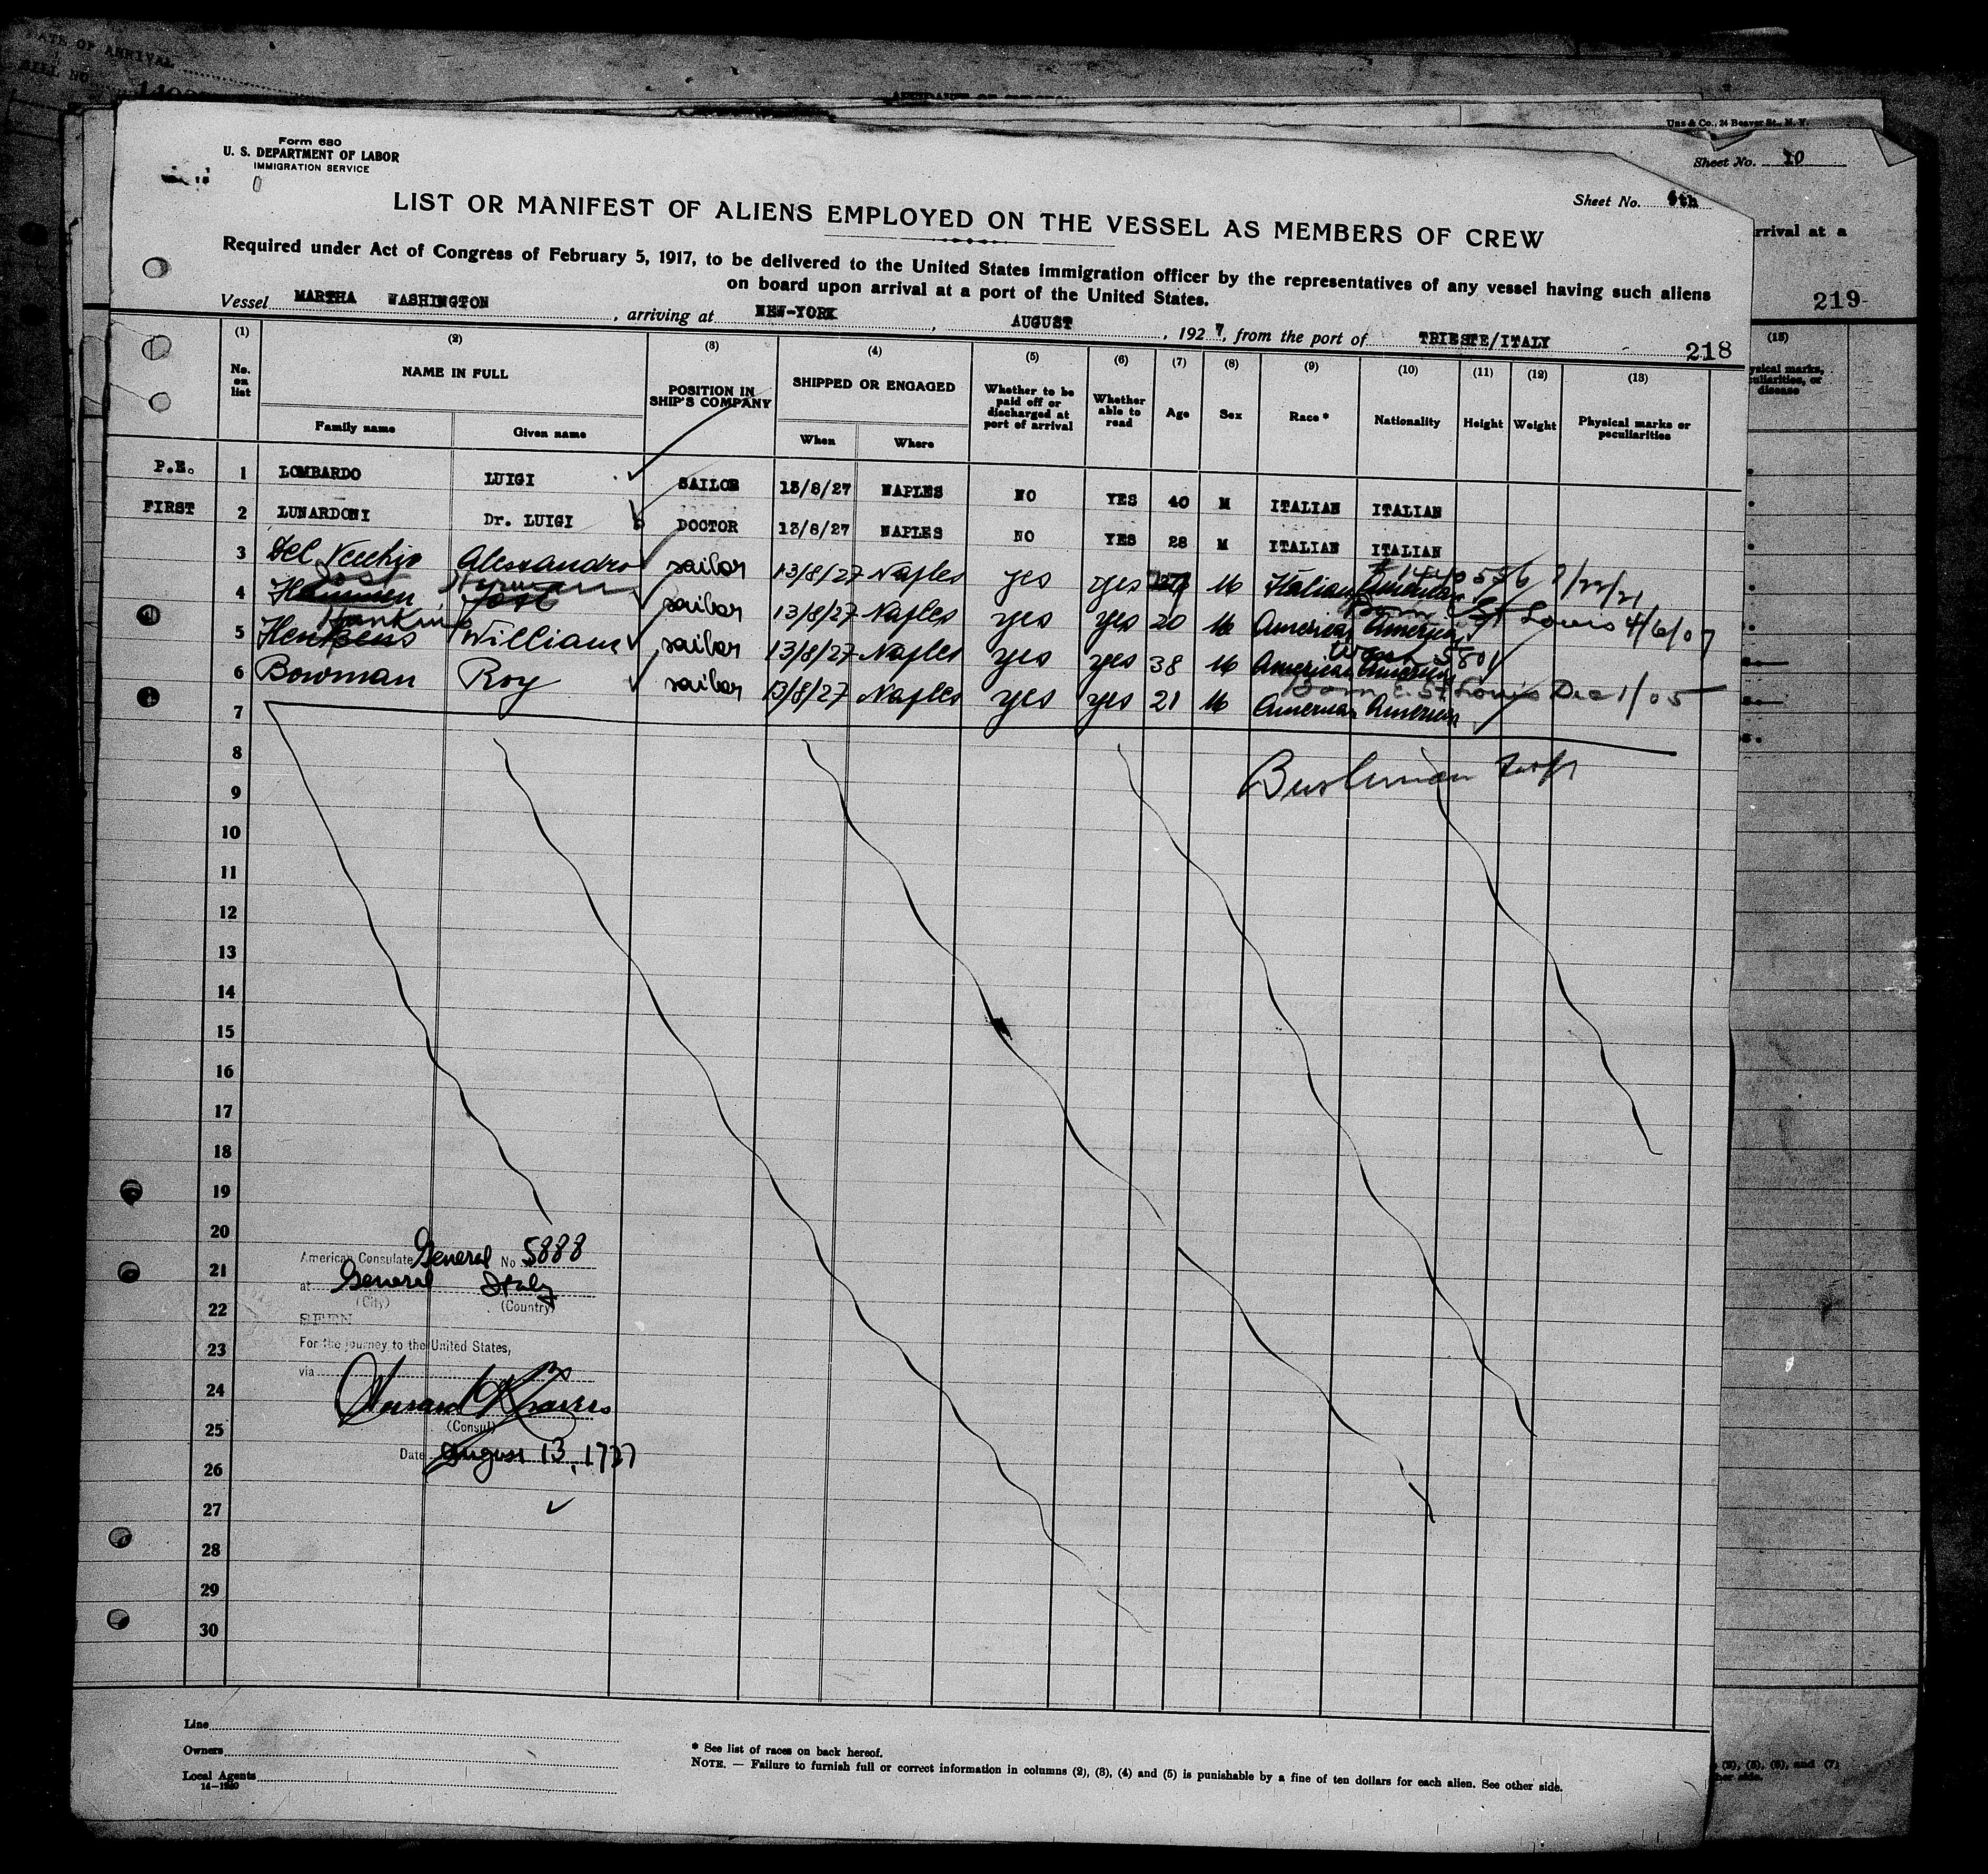 DATE OF ARRIVAL
Uns & Co., 24 Beaver St., N. Y.
Sheet No. 10
rrival at a
219
(13)
ysical marks,
culiarities, or
disease
Form 680
U. S. DEPARTMENT OF LABOR
IMMIGRATION SERVICE
Sheet No. 6th
LIST OR MANIFEST OF ALIENS EMPLOYED ON THE VESSEL AS MEMBERS OF CREW
Required under Act of Congress of February 5, 1917, to be delivered to the United States immigration officer by the representatives of any vessel having such aliens
on board upon arrival at a port of the United States.
Vessel MARTHA WASHINGTON, arriving at NEW-YORK, AUGUST, 1927, from the port of TRIESTE/ITALY
218
(1) (2) (3) (4) (5) (6) (7) (8) (9) (10) (11) (12) (13)
No. on list NAME IN FULL Family name Given name POSITION IN SHIP'S COMPANY SHIPPED OR ENGAGED When Where Whether to be paid off or discharged at port of arrival Whether able to read Age Sex Race * Nationality Height Weight Physical marks or peculiarities
P.E. 1 LOMBARDO LUIGI SAILOR 13/8/27 NAPLES NO YES 40 M ITALIAN ITALIAN
FIRST 2 LUNARDONI Dr. LUIGI DOCTOR 13/8/27 NAPLES NO YES 28 M ITALIAN ITALIAN
3 Del Vecchio Alessandro sailor 13/8/27 Naples yes yes M Italian American
Jost Herman
4 sailor 13/8/27 Naples yes yes 20 M American American
Born E St Louis 4/6/07
Hankins
5 Henkens William sailor 13/8/27 Naples yes yes 38 M American American
Born E. St Louis Dec 1/05
6 Bowman Roy sailor 13/8/27 Naples yes yes 21 M American American
7
8
Bushman
9
10
11
12
13
14
15
16
17
18
19
20
American Consulate General No. 5888
21
at General Italy
(City) (Country)
22
SEEN
23
For the journey to the United States,
via
24
(Consul)
25
Date August 13, 1927
26
27
28
29
30
Line
Owners
Local Agents
14—1240
* See list of races on back hereof.
NOTE. — Failure to furnish full or correct information in columns (2), (3), (4) and (5) is punishable by a fine of ten dollars for each alien. See other side.
(5), (6), and (7)
her side.